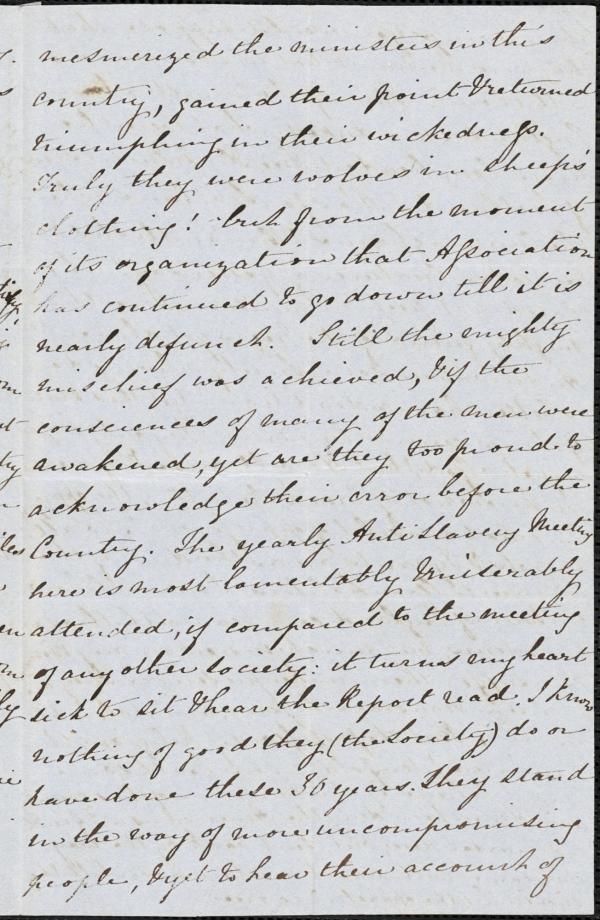 mesmerized the ministers in this
country, gained their point & returned
triumphing in their wickedness.
Truly they were wolves in sheep's
clothing! but from the moment
of its organization that Association
has continued to go down till it is
nearly defunct. Still the mighty
mischief was achieved, & if the
consciences of many of the men were
awakened, yet are they too proud to
acknowledge their error before the
Country. The yearly AntiSlavery Meeting
here is most lamentably & miserably
attended, if compared to the meeting
of any other society: it turns my heart
sick to sit & hear the Report read. I know
nothing of good they (the Society) do or
have done these 30 years. They stand
in the way of more uncompromising
people, & yet to hear their accounts of